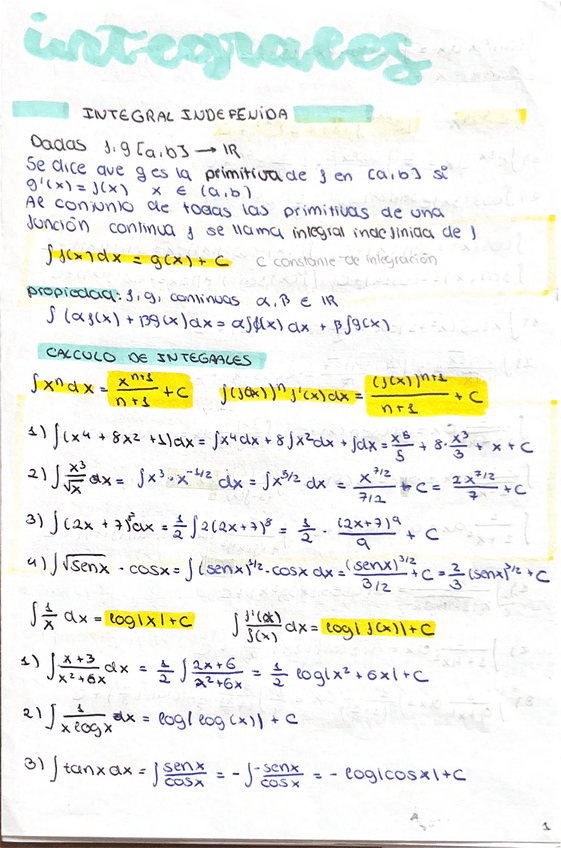 integrales
INTEGRAL INDEFENIDA
Dadas f,g [a,b] → IR
Se dice que g es la primitiva de f en [a,b] si
g'(x) = f(x) x ∈ (a,b)
Al conjunto de todas las primitivas de una
función continua f se llama integral indefinida de f
∫f(x)dx = g(x) + C C constante de integración
propiedad: f,g, continuas α,β ∈ IR
∫(αf(x) + βg(x)dx = α∫f(x)dx + β∫g(x)
CALCULO DE INTEGRALES
∫xⁿdx = xⁿ⁺¹/n+1 + C ∫(f(x))ⁿ f'(x)dx = (f(x))ⁿ⁺¹/n+1 + C
1) ∫(x⁴ + 8x² + 1)dx = ∫x⁴dx + 8∫x²dx + ∫dx = x⁵/5 + 8·x³/3 + x + C
2) ∫x³/√x dx = ∫x³·x^-1/2 dx = ∫x^5/2 dx = x^7/2/7/2 + C = 2x^7/2/7 + C
3) ∫(2x + 7)⁸dx = 1/2 ∫2(2x+7)⁸ = 1/2 · (2x+7)⁹/9 + C
4) ∫√senx · cosx = ∫(senx)^1/2 · cosx dx = (senx)^3/2/3/2 + C = 2/3 (senx)^3/2 + C
∫1/x dx = log|x| + C ∫f'(x)/f(x) dx = log|f(x)| + C
1) ∫x+3/x²+6x dx = 1/2 ∫2x+6/x²+6x = 1/2 log|x² + 6x| + C
2) ∫1/x logx dx = log|log(x)| + C
3) ∫tanx dx = ∫senx/cosx = -∫-senx/cosx = - log|cosx| + C
1